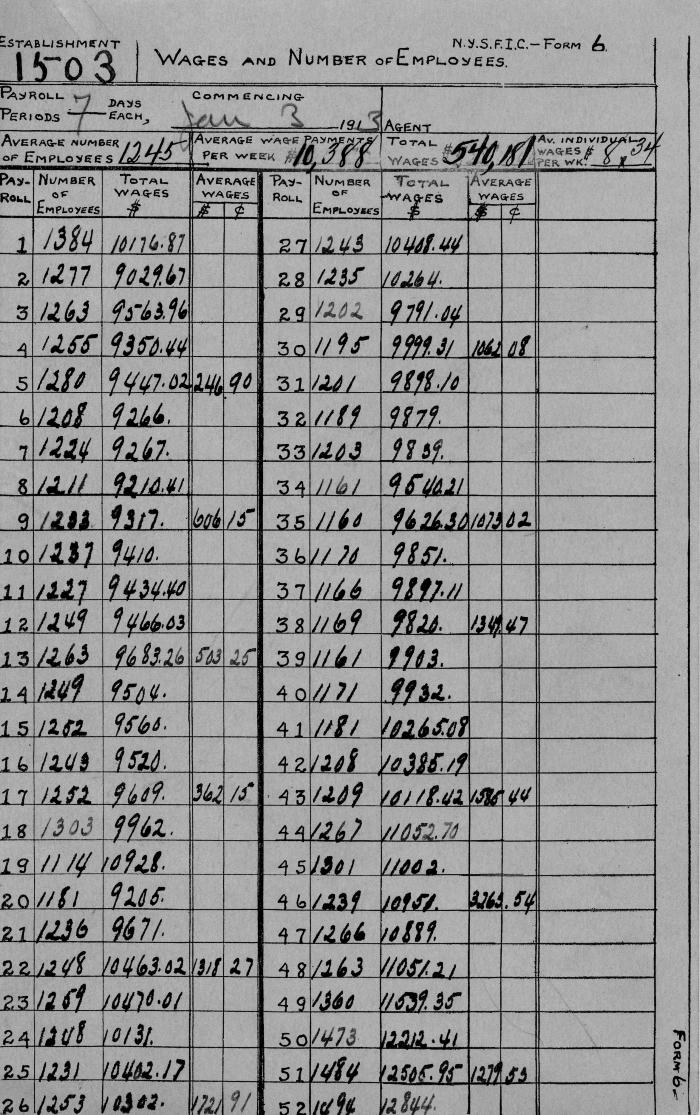 ESTABLISHMENT 1503 WAGES AND NUMBER OF EMPLOYEES. N.Y.S.F.I.C.—FORM 6.
PAYROLL PERIODS 7 DAYS EACH, COMMENCING Jan 3 1913 AGENT
AVERAGE NUMBER OF EMPLOYEES 1245 AVERAGE WAGE PAYMENTS PER WEEK $10,388 TOTAL WAGES $540,181 AV. INDIVIDUAL WAGES PER WK. $8.34
PAY-ROLL NUMBER OF EMPLOYEES TOTAL WAGES $ AVERAGE WAGES $ ¢ PAY-ROLL NUMBER OF EMPLOYEES TOTAL WAGES $ AVERAGE WAGES $ ¢
1 1384 10176.87 27 1243 10408.44
2 1277 9029.67 28 1235 10264.
3 1263 9563.96 29 1202 9791.04
4 1255 9350.44 30 1195 9999.31 1062 08
5 1280 9447.02 246 90 31 1201 9898.10
6 1208 9266. 32 1189 9879.
7 1224 9267. 33 1203 9839.
8 1211 9210.41 34 1161 9540.21
9 1233 9317. 606 15 35 1160 9626.30 1073 02
10 1237 9410. 36 1170 9851.
11 1227 9434.40 37 1166 9897.11
12 1249 9466.03 38 1169 9820. 1349.47
13 1263 9683.26 503 25 39 1161 9903.
14 1249 9504. 40 1171 9932.
15 1252 9560. 41 1181 10265.08
16 1243 9520. 42 1208 10385.19
17 1252 9609. 362 15 43 1209 10118.42 1585 44
18 1303 9962. 44 1267 11052.70
19 1114 10928. 45 1301 11002.
20 1181 9205. 46 1239 10951. 3263.54
21 1236 9671. 47 1266 10889.
22 1248 10463.02 1318 27 48 1263 11051.21
23 1259 10470.01 49 1360 11539.35
24 1248 10131. 50 1473 12212.41
25 1231 10402.17 51 1484 12505.95 1279 53
26 1253 10302. 1721 91 52 1494 12844.
FORM 6—